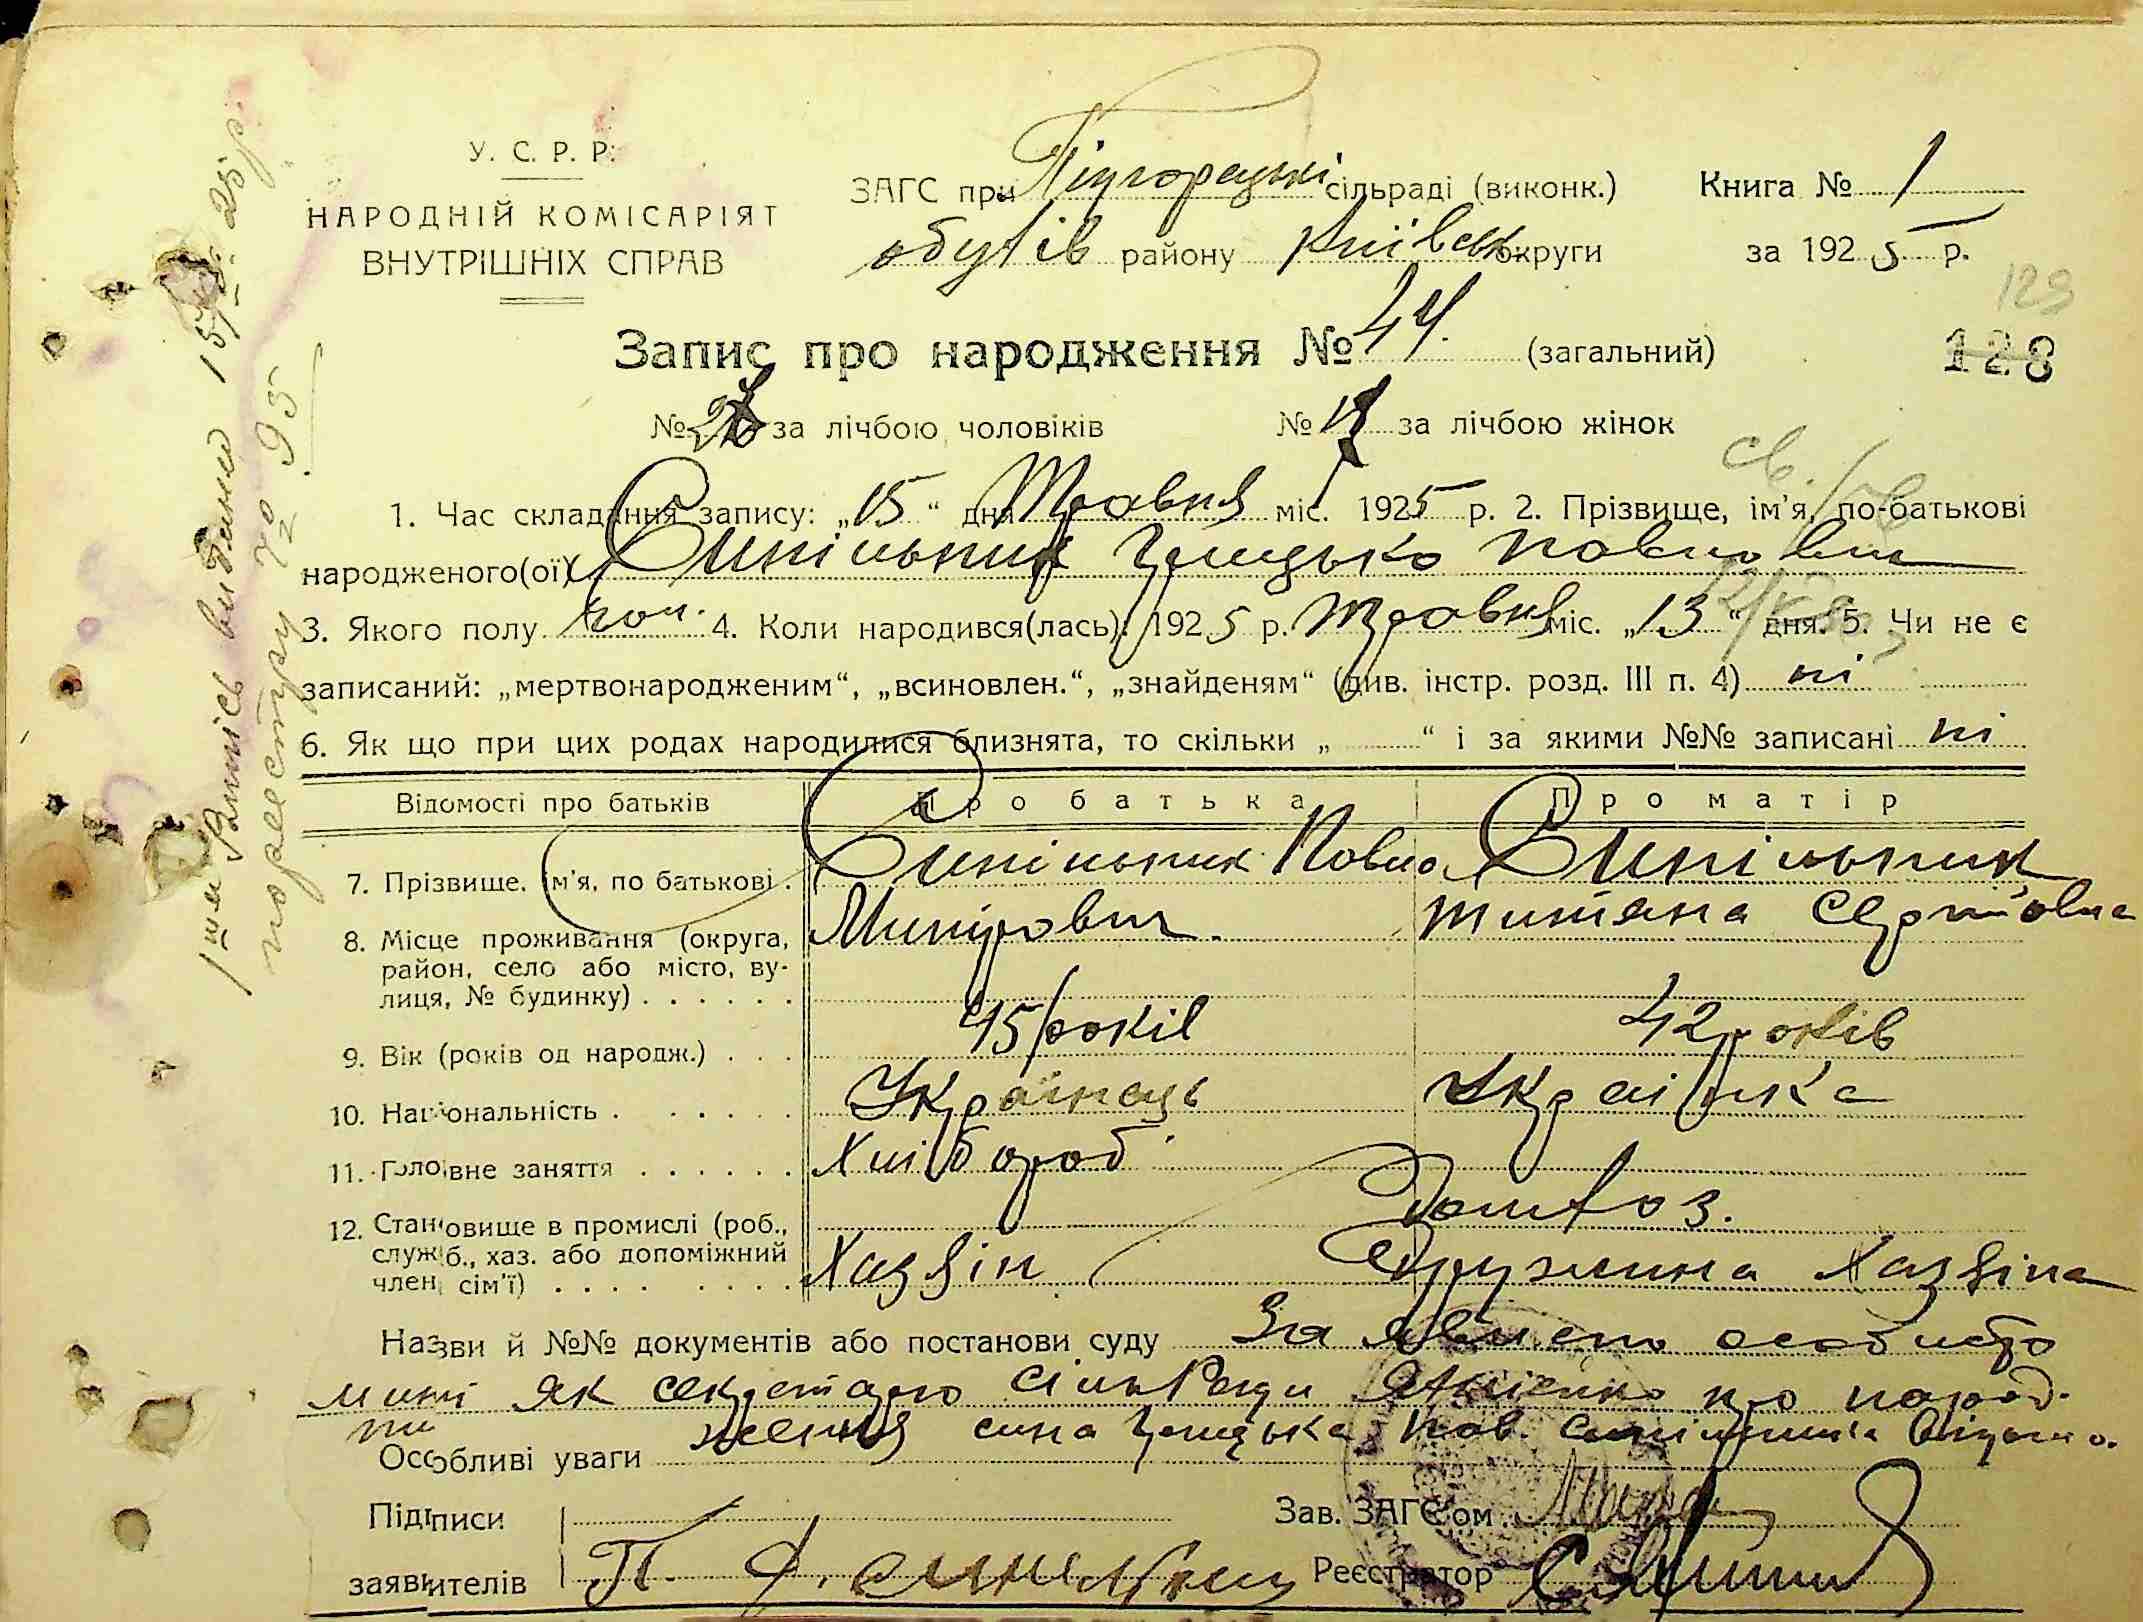 У. С. Р. Р.
НАРОДНІЙ КОМІСАРІЯТ
ВНУТРІШНІХ СПРАВ
ЗАГС при Підгорецькі сільраді (виконк.) Книга № 1
обухів району Київськ округи за 1925 р.
129
128
Запис про народження № 44. (загальний)
№ за лічбою чоловіків № за лічбою жінок
1. Час складання запису: „15“ дня Травня міс. 1925 р. 2. Прізвище, ім'я, по-батькові
народженого(ої) Синільник Грицько Павлович
3. Якого полу чол. 4. Коли народився(лась): 1925 р. Травня міс. „13“ дня. 5. Чи не є
записаний: „мертвонародженим“, „всиновлен.“, „знайденям“ (див. інстр. розд. III п. 4) ні
6. Як що при цих родах народилися близнята, то скільки „ “ і за якими №№ записані ні
Відомості про батьків Про батька Про матір
7. Прізвище, ім'я, по батькові. Синільник Павло Синільник
8. Місце проживання (округа, район, село або місто, вулиця, № будинку) Титяна
9. Вік (років од народж.) 45 років 42 років
10. Національність Українець Українка
11. Головне заняття Хлібороб
Домоз.
12. Становище в промислі (роб., служб., хаз. або допоміжний член сім'ї) Хазяін Дружина Хазяіна
Назви й №№ документів або постанови суду Заявлено особисто
мині як секретарю сільРади про народ-
ження сина Грицька Пав.
Особливі уваги
Підписи
заявителів П.
Зав. ЗАГС'ом
Реєстратор
Витпісь видана 15/V 25 р.
по реєстру № 95